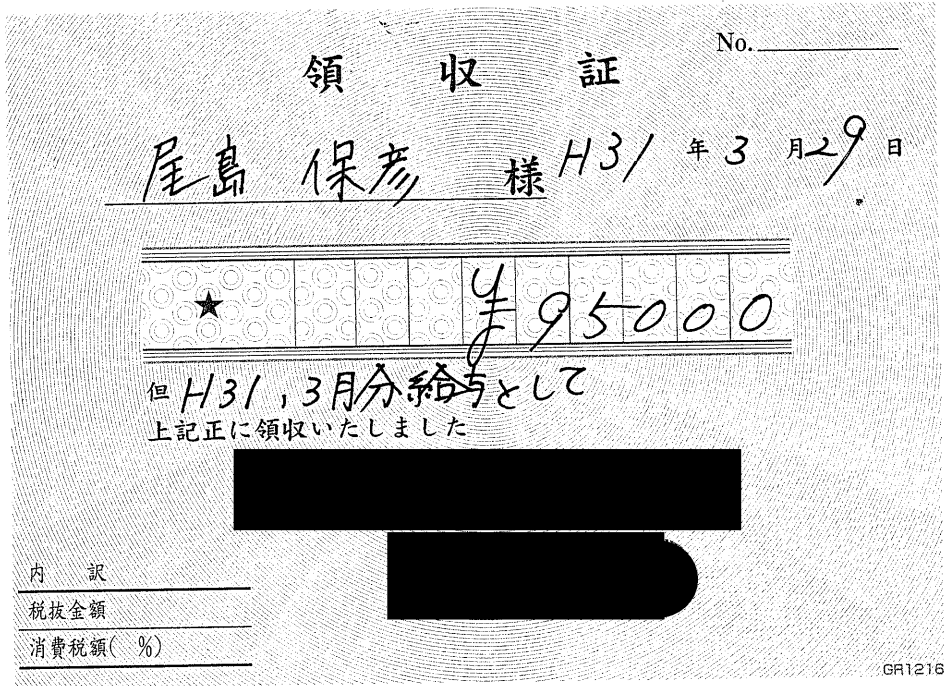 No.
領収証
尾島 保彦 様 H31年3月29日
★ ¥95000
但 H31,3月分給与として
上記正に領収いたしました
内訳
税抜金額
消費税額( %)
GR1216